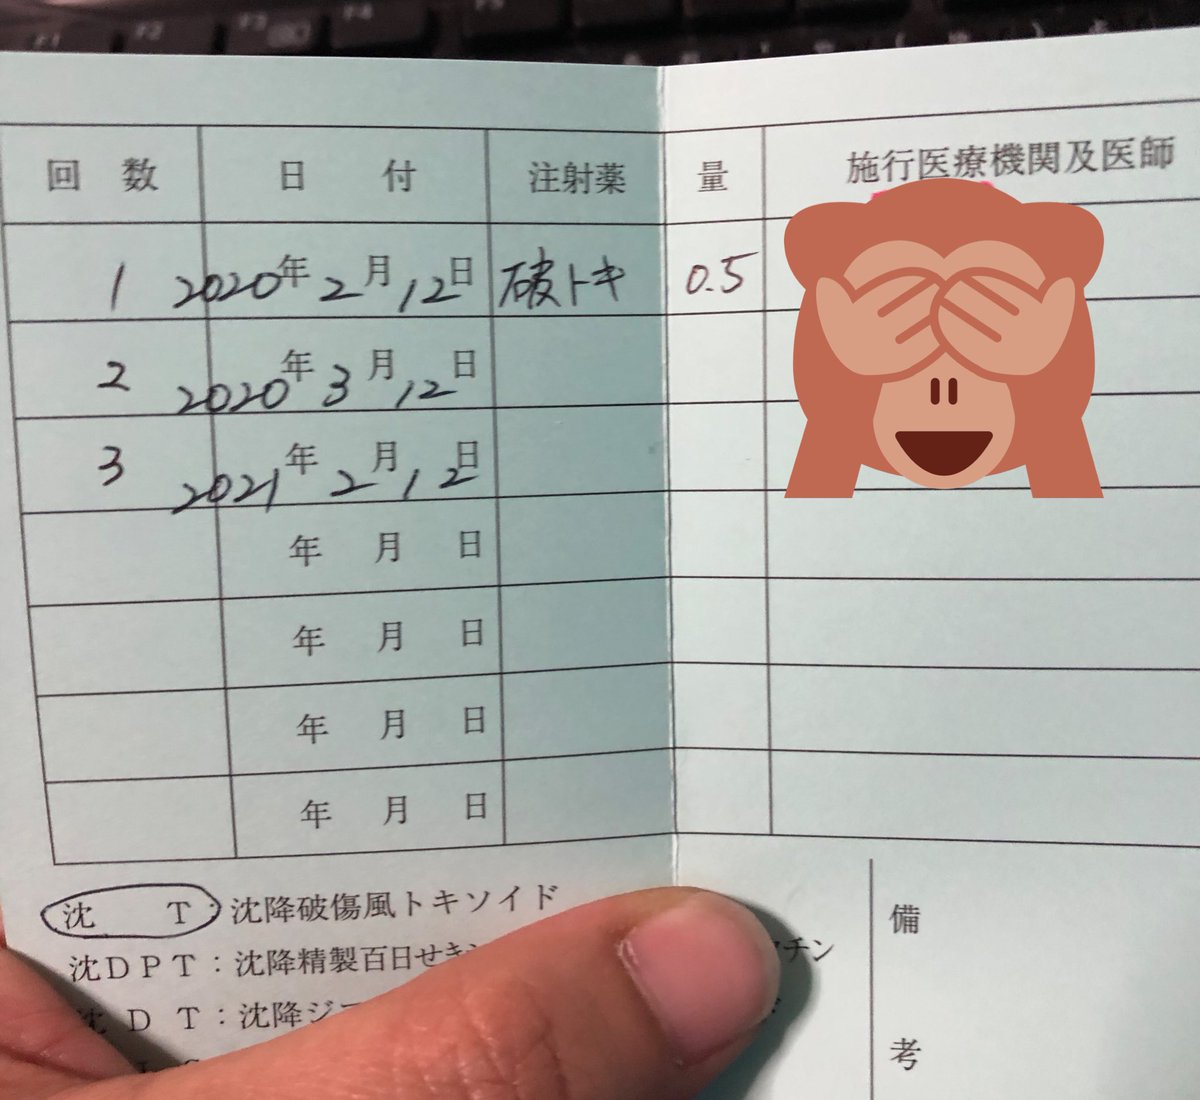 F1 F2 F3
回数 日付 注射薬 量 施行医療機関及医師
1 2020年2月12日 破トキ 0.5
2 2020年3月12日
3 2021年2月12日
年 月 日
年 月 日
年 月 日
年 月 日
沈 T:沈降破傷風トキソイド
沈DPT:沈降精製百日せき チン
沈DT:沈降ジフ
備考